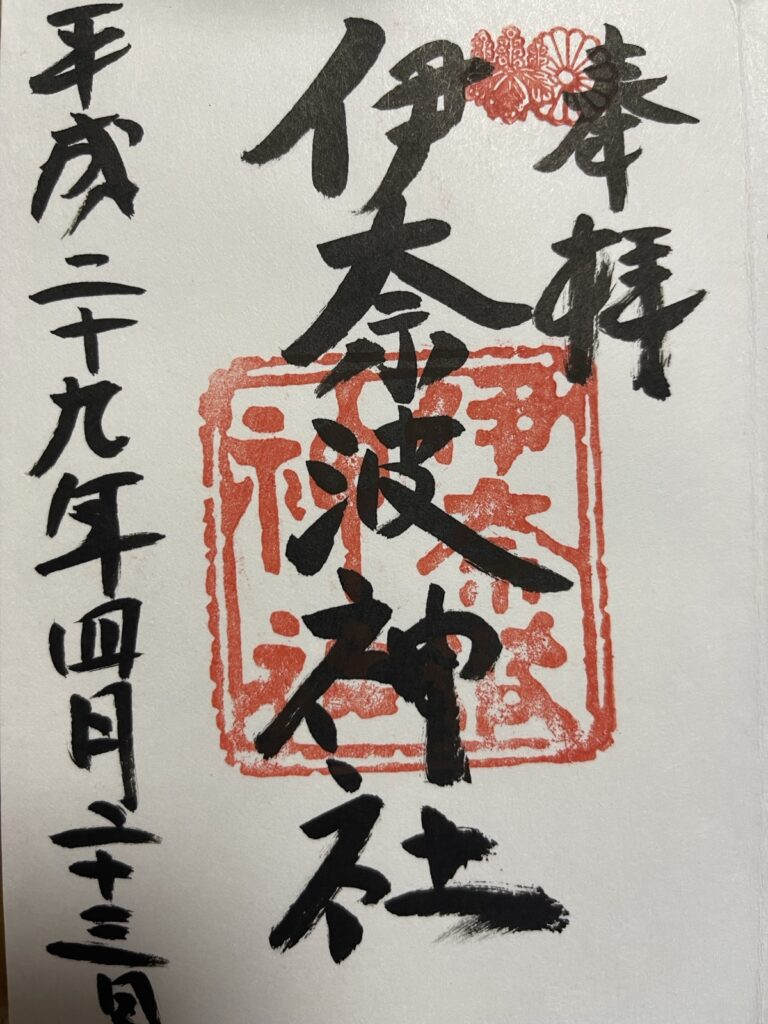 奉拝
伊奈波神社
伊奈波
神社
平成二十九年四月二十三日